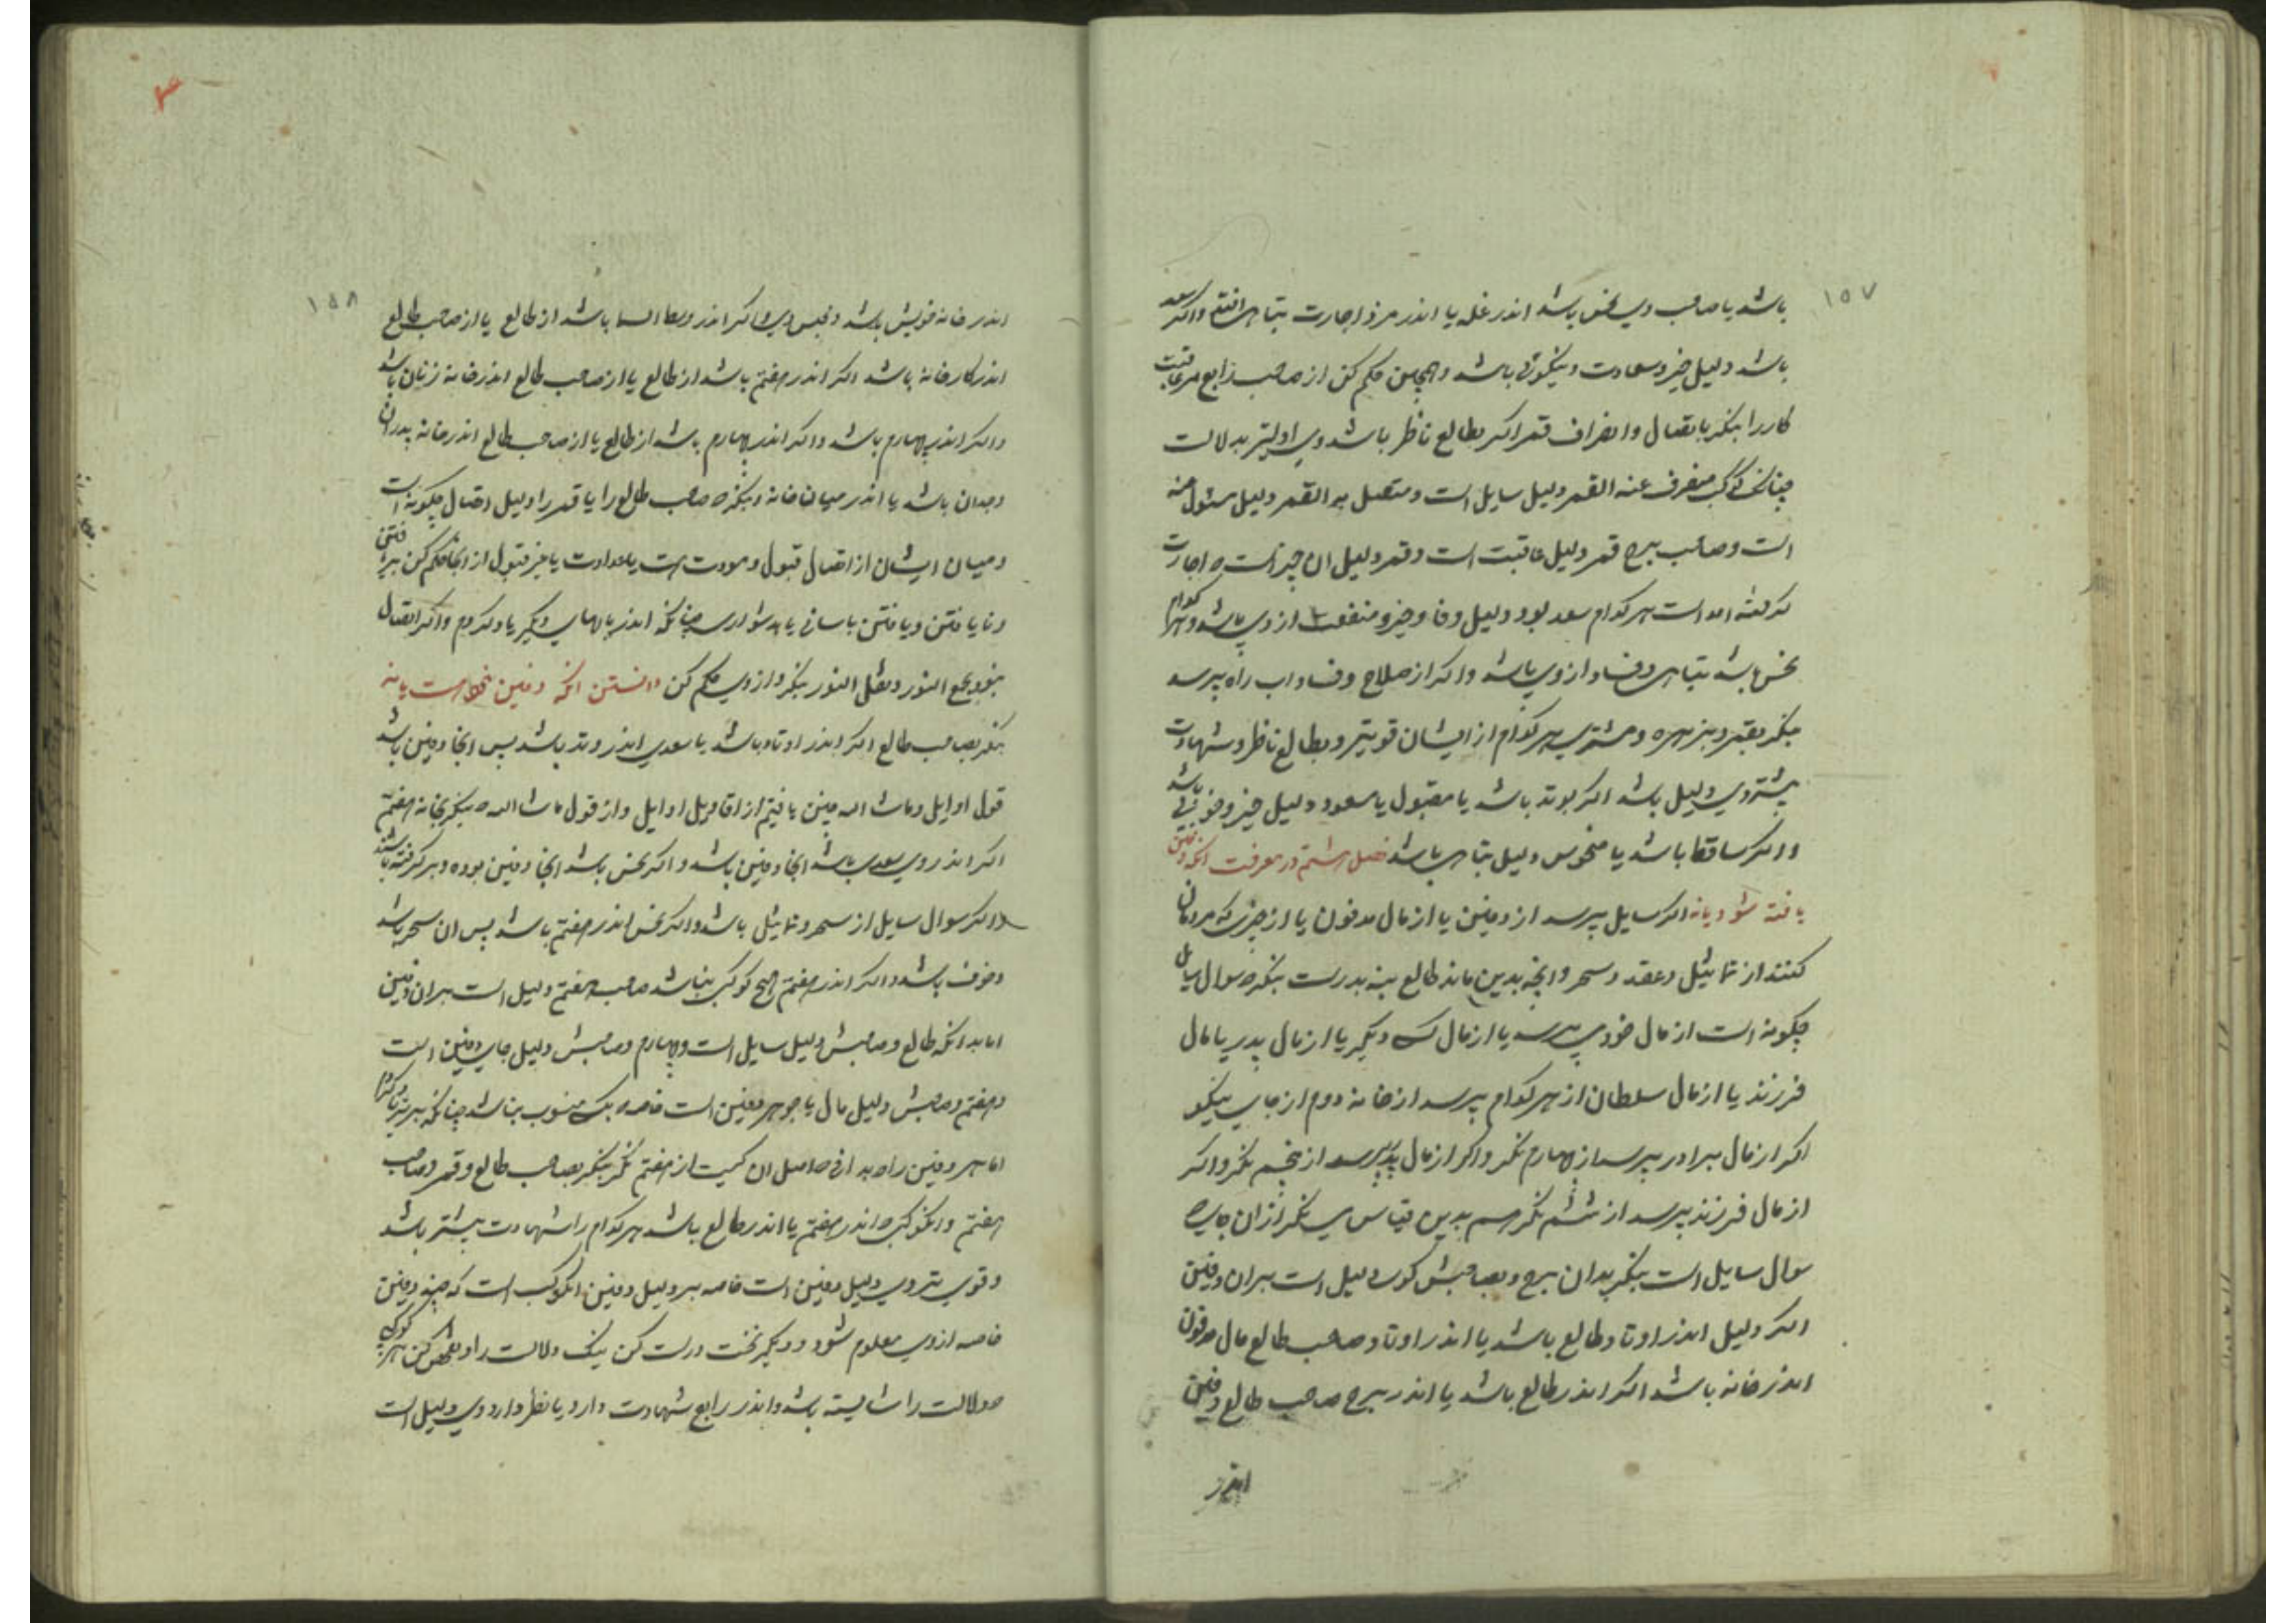 ۱۵۷
باشد یا صاحب وی نحس باشد اندر غله یا اندر مزد اجارت تباهی افتد واکر سعد
باشد دلیل خیر وسعادت ونیکوئی باشد وهمچنین حکم کن از صاحب رابع بر عاقبت
کار را بنکر باتصال وانصراف قمر اکر بطالع ناظر باشد وی اولیتر بدلالت
چنانکه کوکب منصرف عنه القمر دلیل سایل است ومتصل به القمر دلیل مسئول عنه
است وصاحب برج قمر دلیل عاقبت است وقمر دلیل ان چیز است که اجارت
کرفته امد است هر کدام سعد بود دلیل وفا وخیر ومنفعت از وی باشد وهر کدام
نحس باشد تباهی وفساد از وی باشد واکر از صلاح وفساد اب راه پرسد
بنکر بقمر وبزهره ومشتری هر کدام از ایشان قویتر وبطالع ناظر وشهادت
بیشتر وی دلیل باشد اکر بوتد باشد یا مقبول یا مسعود دلیل خیر وخوبی باشد
واکر ساقط باشد یا منحوس دلیل تباهی باشد فصل هشتم در معرفت انکه دفین
یافته شود یا نه اکر سایل پرسد از دفین یا از مال مدفون یا از چیزی که مردمان
کنند از تماثیل وعقد وسحر وانچه بدین ماند طالع بنه بدرست بنکر که سوال سایل
چکونه است از مال خود می پرسد یا از مال کسی دیکر یا از مال پدر یا مال
فرزند یا از مال سلطان از هر کدام پرسد از خانه دوم از جای نیکو
اکر از مال برادر پرسد از چهارم نکر واکر از مال پدر پرسد از پنجم نکر واکر
از مال فرزند پرسد از ششم نکر هم بدین قیاس می نکر از ان جای که
سوال سایل است بنکر بدان برج وبصاحبش کو دلیل است بران دفین
اکر دلیل اندر اوتاد طالع باشد یا اندر اوتاد صاحب طالع مال مدفون
اندر خانه باشد اکر اندر طالع باشد یا اندر برج صاحب طالع دفین
اندر
۱۵۸
اندر خانه خویش باشد واکر اندر وسط السما باشد از طالع یا از صاحب طالع
اندر کارخانه باشد اکر اندر هفتم باشد از طالع یا از صاحب طالع اندر خانه زنان باشد
واکر اندر چهارم باشد واکر اندر چهارم باشد از طالع یا از صاحب طالع اندر خانه پدران
وجدان باشد یا اندر میان خانه وبنکر که صاحب طالع را یا قمر را ودلیل اتصال چکونه است
ومیان ایشان از اتصال قبول ومودت هست یا عداوت یا غیر قبول از انجا حکم کن بریافتن
ونایافتن ویافتن باسانی یا بدشواری چنانکه اندر بابهای دیکر یاد کردم واکر اتصال
نبود بجمع النور ونقل النور بنکر واز وی حکم کن دانستن انکه دفین بجایست یا نه
بنکر بصاحب طالع اکر اندر اوتاد باشد یا سعدی اندر وتد باشد پس انجا دفین باشد
قول اوایل وماشا الله چنین یافتیم از اقاویل اوایل واز قول ماشا الله که بنکر بخانه هفتم
اکر اندر وی سعدی باشد انجا دفین باشد واکر نحس باشد انجا دفین بوده وبر کرفته باشند
واکر سوال سایل از سحر وتماثیل باشد واکر نحس اندر هفتم باشد پس ان سحر باشد
وخوف باشد واکر اندر هفتم هیچ کوکب نباشد صاحب هفتم دلیل است بران دفین
اما بدانکه طالع وصاحبش دلیل سایل است وچهارم وصاحبش دلیل جای دفین است
وهفتم وصاحبش دلیل مال یا جوهر دفین است خاصه بکس منسوب نباشد چنانکه
اما هر دفین را که بدانی که اصل ان کیست از هفتم نکر بنکر بصاحب طالع وقمر وصاحب
هفتم وانکوکب که اندر هفتم یا اندر طالع باشد هر کدام را شهادت بیشتر باشد
وقوی تر وی دلیل دفین است خاصه بر دلیل دفین انکوکب است که چیز دفین
خاصه از وی معلوم شود ودیکر نخست درست کن نیک دلالت را وتفحص کن هر کوکبی
که دلالت را شایسته باشد واندر رابع شهادت دارد یا نظر دارد وی دلیل است